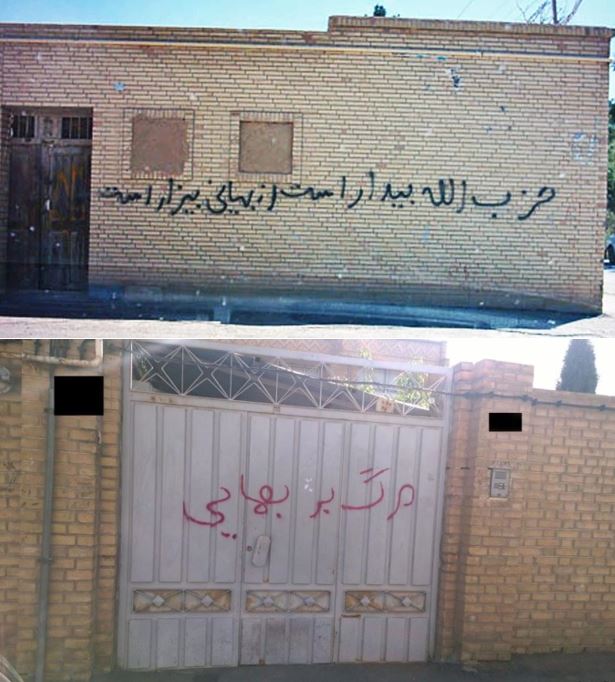 حزب الله بیدار است از بهایی بیزار است
مرگ بر بهایی